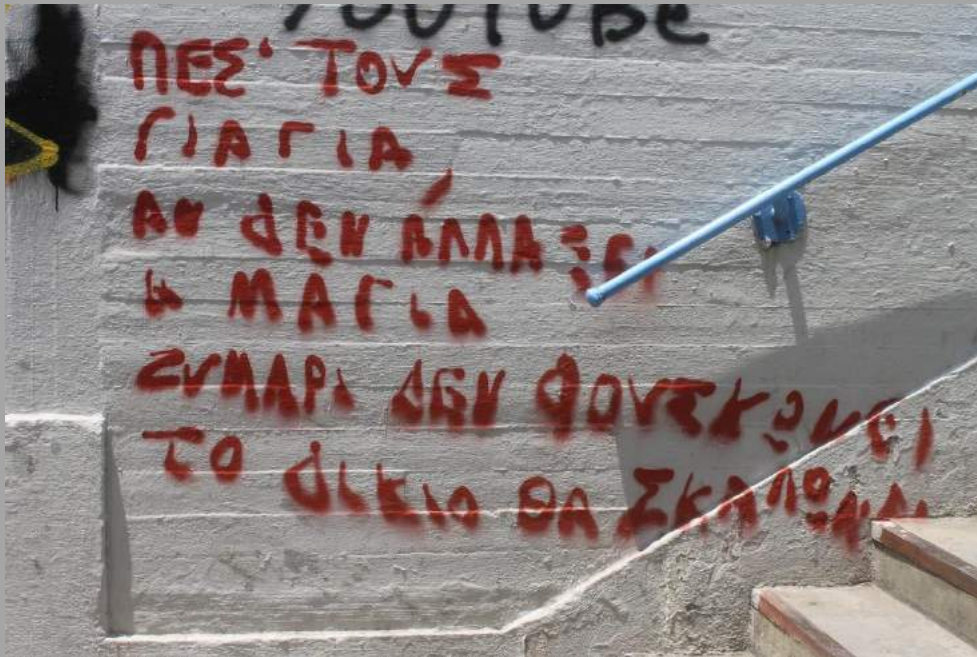 YOUTUBE
ΠΕΣ' ΤΟΥΣ
ΓΙΑΓΙΑ
ΑΝ ΔΕΝ ΆΛΛΑΞΕΙ
Η ΜΑΓΙΑ
ΖΥΜΑΡΙ ΔΕΝ ΦΟΥΣΚΩΝΕΙ
ΤΟ ΔΙΚΙΟ ΘΑ ΣΚΑΛΩΝΕΙ